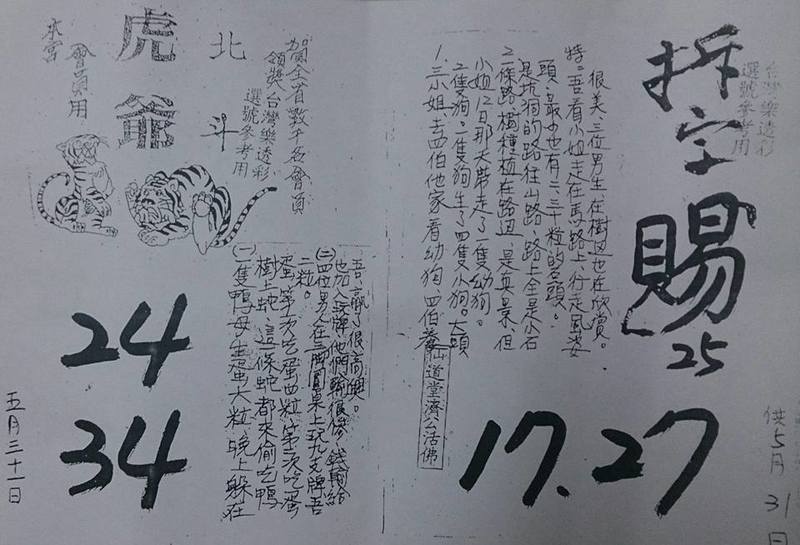 台灣樂透彩
選號參考用
拆字賜
25
17.27
供5月31日
1.三小姐去四伯他家看幼狗,四伯養
二隻狗。一隻狗生了四隻小狗。大頭
小姐12日那天帶走了一隻幼狗。
2.二條路樹種植在路邊,是真景,但
是坑洞的路往山路,路上全是小石
頭,最少也有二、三十粒的石頭。
特。吾看小姐走在馬路上,行走風姿
很美,三位男生在樹邊也在欣賞。
仙道堂濟公活佛
賀全省數千名會員
領獎台灣樂透彩
選號參考用
北斗
虎爺
會員用
(一)隻鴨母生蛋大粒,晚上躲在
樹上蛇,這條蛇都來偷吃鴨
蛋,第一次吃蛋四粒,第二次吃蛋
二粒。
(二)四位男人在三腳圓桌上玩九支牌吾
也加入玩牌他們輸很慘,錢剛給
吾,贏了很高興。
24
34
五月三十一日